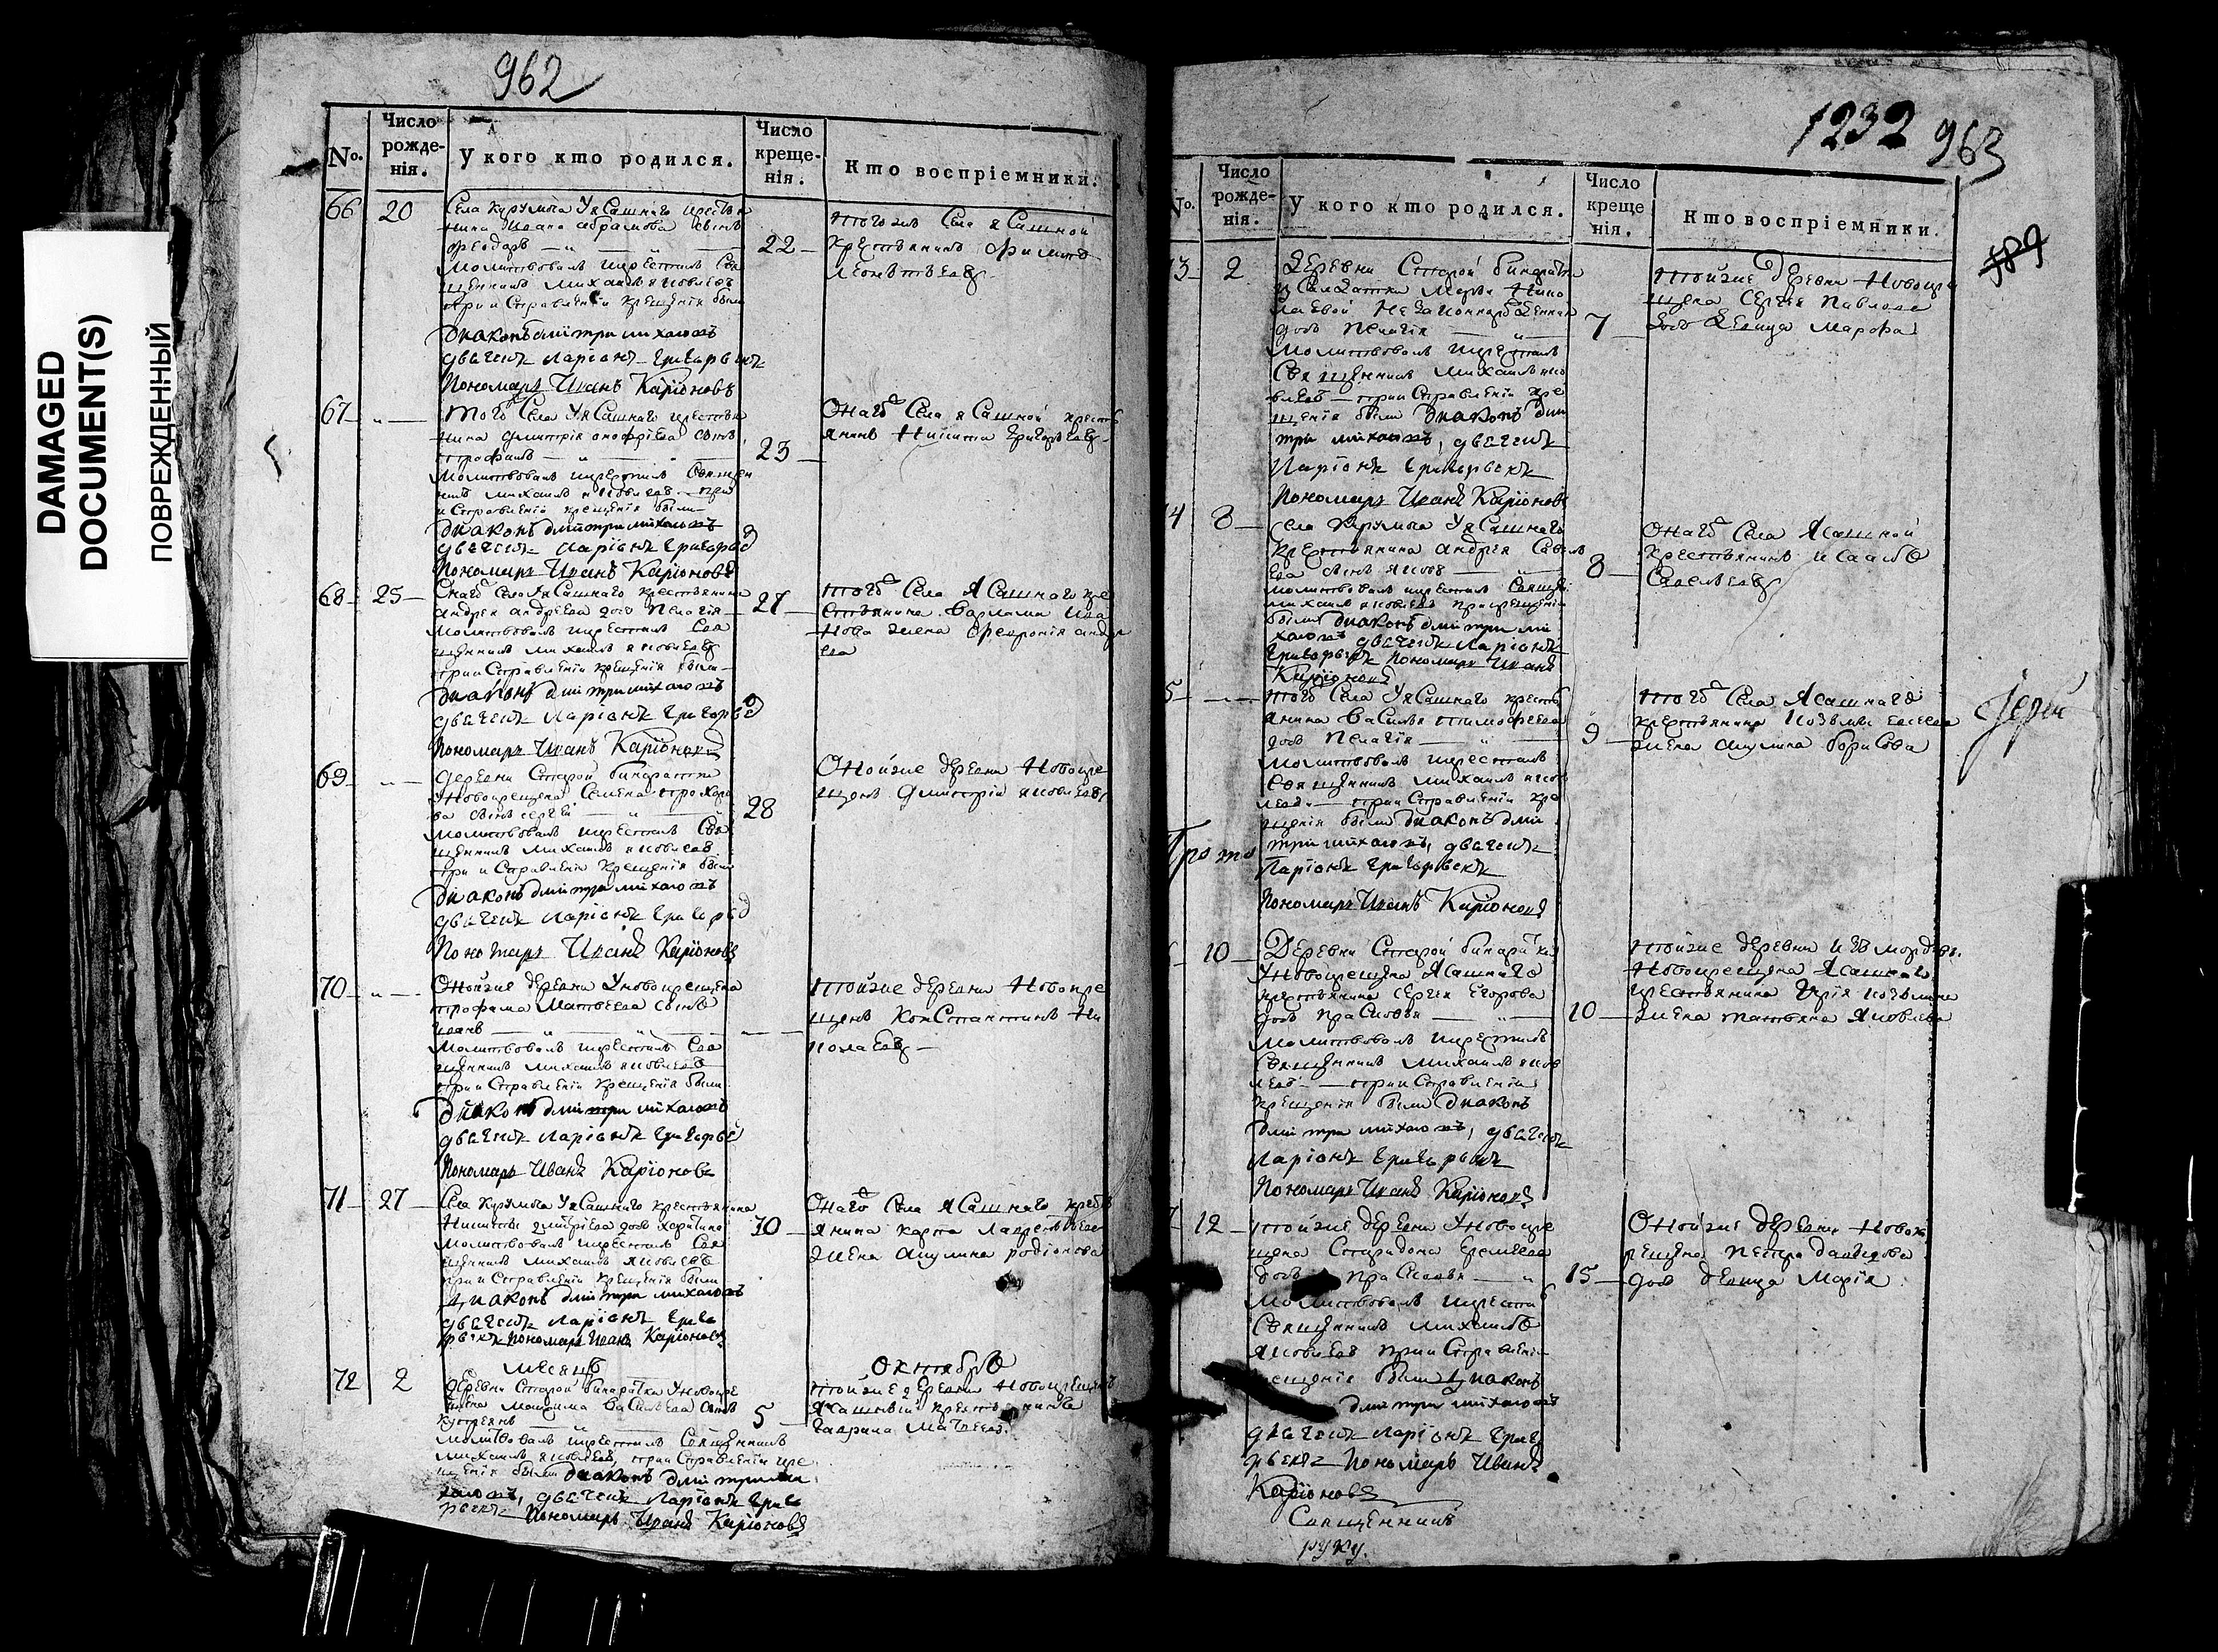 DAMAGED
DOCUMENT(S)
ПОВРЕЖДЕННЫЙ
962
No.
Число рожде-нія.
У кого кто родился.
Число креще-нія.
Кто воспріемники.
66 20
Села
Ивана Абрамова сынъ
Феодоръ
молитвовалъ и крестилъ Свя
щенникъ Михаилъ Яковлевъ
при исправленіи крещенія были
диаконъ Дмитри Михаловъ
дьячекъ Ларіонъ Григорьевъ
Пономарь Иванъ Каріоновъ
22
того же села ясашной
крестьянинъ
Леонтьевъ
67
того села у ясашнаго крестья
нина Дмитрія Онофріева сынъ
Трофимъ
молитвовалъ и крестилъ Священ
никъ Михаилъ Яковлевъ при
исправленіи крещенія были
диаконъ Дмитри Михаловъ
дьячекъ Ларіонъ Григорьев
Пономарь Иванъ Каріоновъ
23
Онаго села ясашной кресть
янинъ Никита Григорьевъ
68 25
Онаго села у ясашнаго крестьянина
Андрея Андреева дочь Пелагія
молитвовалъ и крестилъ Свя
щенникъ Михаилъ Яковлевъ
при исправленіи крещенія были
диаконъ Дмитри Михаловъ
дьячекъ Ларіонъ Григорьев
Пономарь Иванъ Каріоновъ
27
того села ясашнаго кре
стьянина Варлама Ива
нова жена Февронія Андре
ева
69
деревни Старой
у новокрещена Семена Прохоро
ва сынъ Сергей
молитвовалъ и крестилъ Свя
щенникъ Михаилъ Яковлевъ
при исправленіи крещенія были
диаконъ Дмитри Михаловъ
дьячекъ Ларіонъ Григорьев
Пономарь Иванъ Каріоновъ
28
Оной же деревни новокре
щенъ Дмитрій Яковлевъ
70
Оной же деревни у новокрещена
Трофима Матвеева сынъ
Иванъ
молитвовалъ и крестилъ Свя
щенникъ Михаилъ Яковлевъ
при исправленіи крещенія были
диаконъ Дмитри Михаловъ
дьячекъ Ларіонъ Григорьев
Пономарь Иванъ Каріоновъ
той же деревни новокре
щенъ Константинъ Ни
колаевъ
71 27
Села у ясашнаго крестьянина
Никиты Дмитріева дочь Харитина
молитвовалъ и крестилъ Свя
щенникъ Михаилъ Яковлевъ
при исправленіи крещенія были
диаконъ Дмитри Михаловъ
дьячекъ Ларіонъ Григо
рьевъ Пономарь Иванъ Каріоновъ
30
Онаго села ясашнаго кресть
янина Карпа Лаврентьева
жена Акулина Родіонова
месяцъ октябрь
72 2
деревни Старой у новокре
щена Максима Васильева сынъ
молитвовалъ и крестилъ Священникъ
Михаилъ Яковлевъ, при исправленіи кре
щенія были диаконъ Дмитри Ми
халовъ, дьячекъ Ларіонъ Григо
рьевъ Пономарь Иванъ Каріоновъ
5
той же деревни новокрещенъ
ясашный крестьянинъ
Гаврила Матвеевъ.
1232 963
589
No.
Число рожде-нія.
У кого кто родился.
Число креще нія.
Кто воспріемники.
3 2
Деревни Старой
у солдатки Марьи Нико
лаевой незаконнорожденная
дочь Пелагія
молитвовалъ и крестилъ
Священникъ Михаилъ Яко
влевъ при исправленіи кре
щенія были диаконъ Дми
три Михаловъ, дьячекъ
Ларіонъ Григорьевъ
Пономарь Иванъ Каріоновъ
7
той же деревни новокре
щена Сергея Павлова
дочь девица Марфа
4 8
Села у ясашнаго
крестьянина Андрея Савель
ева сынъ Яковъ
молитвовалъ и крестилъ Священ
Михаилъ Яковлевъ при крещеніи
были диаконъ Дмитри Ми
халовъ дьячекъ Ларіонъ
Григорьевъ Пономарь Иванъ
Каріоновъ
8
Онаго села ясашной
крестьянинъ Исаакъ
Савельевъ
5
того села у ясашнаго кресть
янина Василья Тимофеева
дочь Пелагія
молитвовалъ и крестилъ
Священникъ Михаилъ Яков
левъ при исправленіи кре
щенія были диаконъ Дми
три Михаловъ, дьячекъ
Ларіонъ Григорьевъ
Пономарь Иванъ Каріоновъ
9
того села ясашнаго
крестьянина Козьмы Елесеева
жена Акулина Борисова
Іерей
Прото
10
Деревни Старой
у новокрещена ясашнаго
крестьянина Сергея Егорова
дочь Прасковья
молитвовалъ и крестилъ
Священникъ Михаилъ Яков
левъ при исправленіи
крещенія были диаконъ
Дмитри Михаловъ, дьячекъ
Ларіонъ Григорьевъ
Пономарь Иванъ Каріоновъ
10
той же деревни изъ мордвы
новокрещена ясашнаго
крестьянина Козьмина
жена Татьяна Яковлева
12
той же деревни у новокре
щена Спиридона Еремеева
дочь Прасковья
молитвовалъ и крестил
Священникъ Михаилъ
Яковлевъ при исправленіи
крещенія были диаконъ
Дмитри Михаловъ
дьячекъ Ларіонъ Григо
рьевъ Пономарь Иванъ
Каріоновъ
15
Оной же деревни новок
рещена Петра Давыдова
дочь девица Марія
Священникъ
руку.